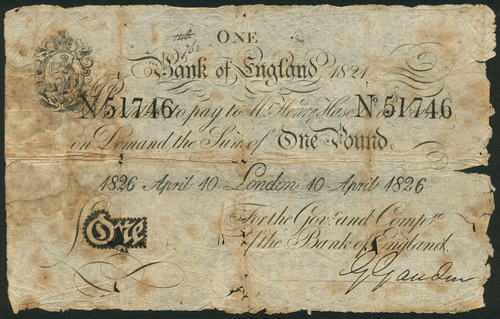 ONE
Bank of England 1821
Nº51746 to pay to Mr. Henry Hase Nº51746
on Demand the Sum of One Pound.
1826 April 10 London 10 April 1826
For the Govr. and Compa.
One of the Bank of England.
G Gaudin